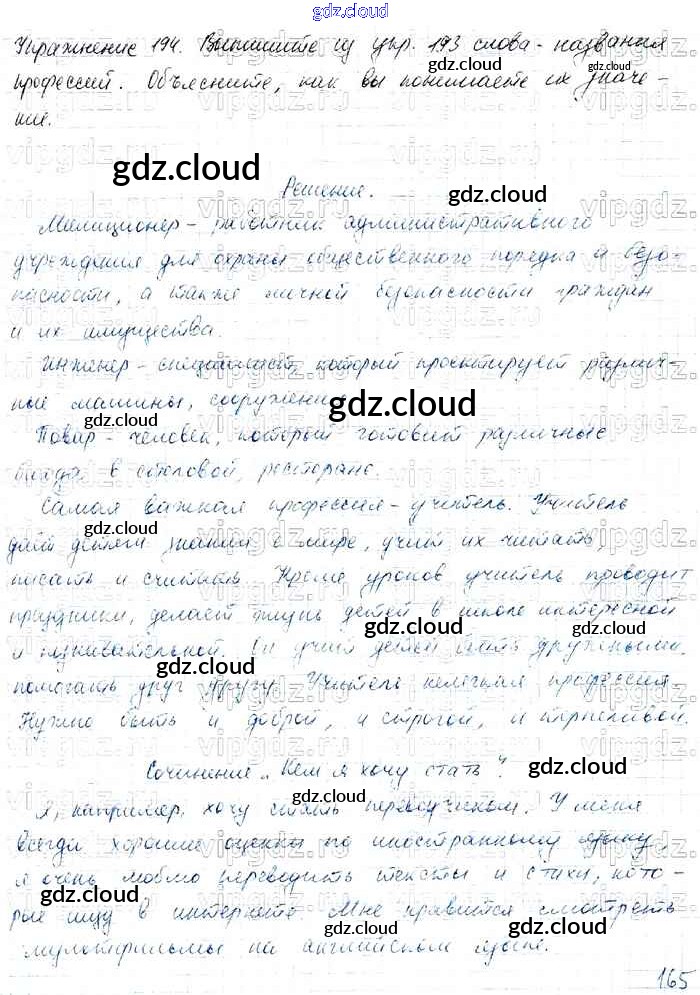 gdz.cloud
Упражнение 194. Выпишите из упр. 193 слова - названия
профессий. Объясните, как вы понимаете их значе-
ние.
Решение.
Милиционер - работник административного
учреждения для охраны общественного порядка и безо-
пасности, а также личной безопасности граждан
и их имущества.
Инженер - специалист, который проектирует различ-
ные машины, сооружения.
Повар - человек, который готовит различные
блюда в столовой, ресторане.
Самая важная профессия - учитель. Учитель
даёт детям знания о мире, учит их читать,
писать и считать. Кроме уроков учитель проводит
праздники, делает жизнь детей в школе интересной
и познавательной. Он учит детей быть дружными,
помогать друг другу. Учитель нелегкая профессия.
Нужно быть и доброй, и строгой, и терпеливой.
Сочинение „Кем я хочу стать"?
Я, например, хочу стать переводчиком. У меня
всегда хорошие оценки по иностранному языку,
я очень люблю переводить тексты и стихи, кото-
рые ищу в интернете. Мне нравится смотреть
мультфильмы на английском языке.
165